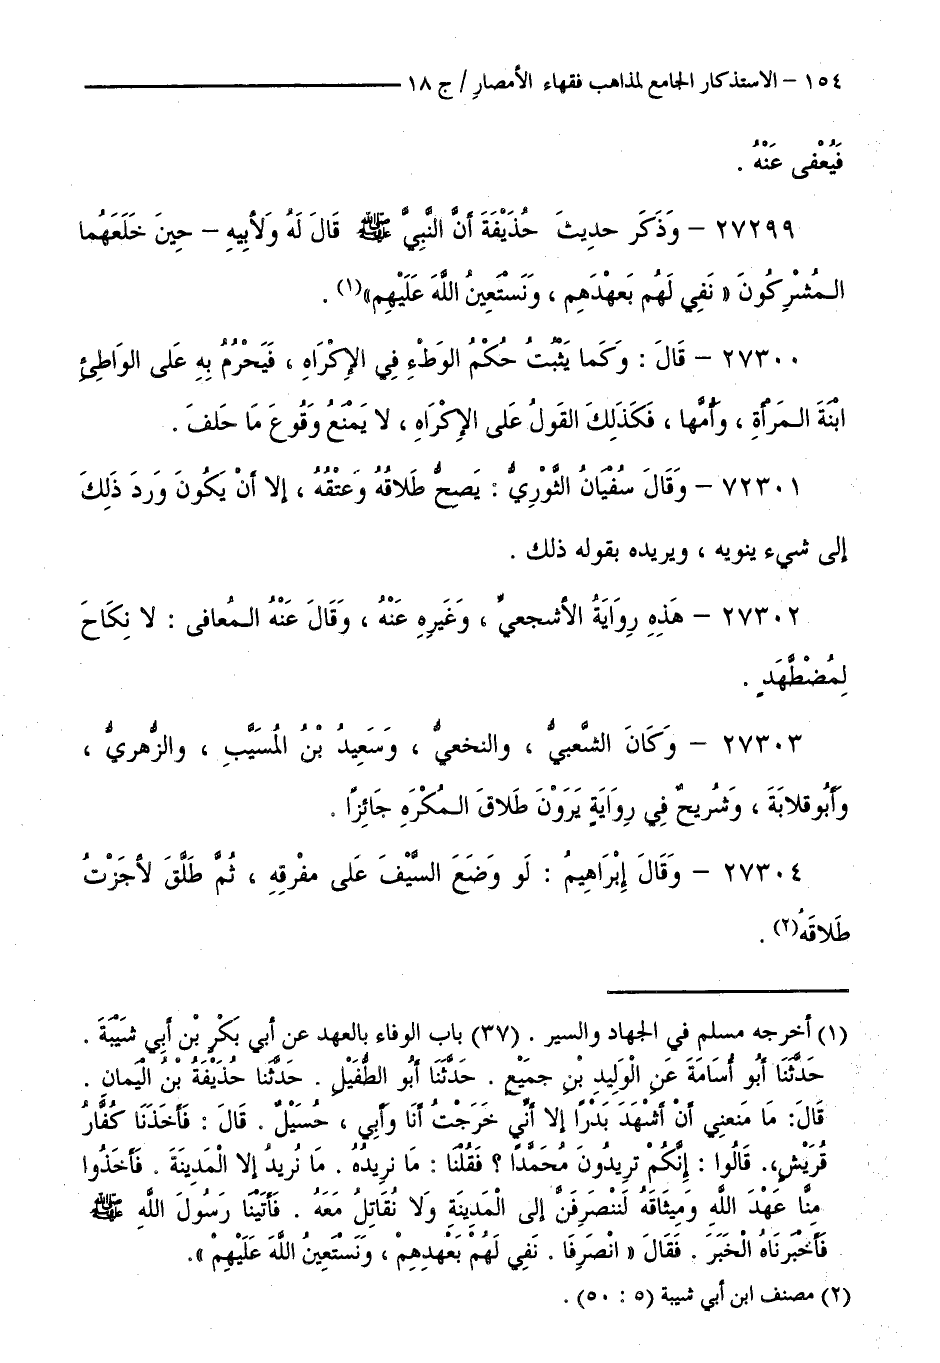 ١٥٤ – الاستذكار الجامع لمذاهب فقهاء الأمصارِ / ج ١٨
فَيُعْفى عَنْهُ .
٢٧٢٩٩ – وَذَكَرَ حديثَ حُذَيْفَةَ أنَّ النَّبِيَّ ﷺ قَالَ لَهُ وَلأبِيهِ – حِينَ خَلَعَهُما
المُشْرِكُونَ « نَفِي لَهُم بَعهْدَهِم ، ونَسْتَعِينُ اللَّهَ عَلَيْهِم»(١) .
٢٧٣٠٠ – قَالَ : وَكَما يَثْبُتُ حُكْمُ الوَطْءِ فِي الإكْرَاهِ ، فَيَحْرُمُ بِهِ عَلى الوَاطِئِ
ابْنَةَ المَرْأةِ ، وأُمَّها ، فَكَذَلِكَ القَولُ عَلى الإكْرَاهِ ، لا يَمْنَعُ وَقُوعَ مَا حَلفَ .
٧٢٣٠١ – وَقَالَ سُفْيَانُ الثَّوْرِيُّ : يَصِحُّ طَلاقُهُ وَعتْقُهُ ، إلا أنْ يَكُونَ وَردَ ذَلِكَ
إلى شيء ينويه ، ويريده بقوله ذلك .
٢٧٣٠٢ – هَذِهِ رِوَايَةُ الأشجعيِّ ، وَغَيرِهِ عَنْهُ ، وَقَالَ عَنْهُ المُعافى : لا نِكَاحَ
لِمُضْطَّهَدٍ .
٢٧٣٠٣ – وَكَانَ الشَّعبيُّ ، والنخعيُّ ، وَسَعِيدُ بْنُ المُسَيَّبِ ، والزُّهريُّ ،
وَأَبُوقلابَةَ ، وَشُريحٌ فِي رِوَايَةٍ يَرَوْنَ طَلاقَ المُكْرَهِ جَائِزًا .
٢٧٣٠٤ – وَقَالَ إِبْرَاهِيمُ : لَو وَضَعَ السَّيْفَ عَلى مفْرقِهِ ، ثُمَّ طَلَّقَ لأجَزْتُ
طَلاقَهُ(٢) .
(١) أخرجه مسلم في الجهاد والسير . (٣٧) باب الوفاء بالعهد عن أبي بَكْرِ بْنِ أبِي شَيْبَةَ .
حَدَّثَنَا أبُو أُسَامَةَ عَنِ الْوَلِيدِ بْنِ جميَعٍ . حَدَّثَنَا أبُو الطُّفَيْلِ . حَدَّثَنا حُذَيْفَةُ بْنُ الْيَمانِ .
قَالَ: مَا مَنعنِي أنْ أشْهَدَ بَدْرًا إلا أنِّي خَرَجْتُ أنَا وَأبِي ، حُسَيْلٌ . قَالَ : فَأخَذَنَا كُفَّارُ
قُرَيْشٍ،. قَالُوا : إنَّكُمْ تريدُونَ مُحَمَّدًا ؟ فَقُلْنَا : مَا نريدُهُ . مَا نُريدُ إلا الْمَدِينَةَ . فَأخَذُوا
مِنَّا عَهْدَ اللَّهِ وَمِيثَاقَهُ لَنَنْصَرِفَنَّ إلى الْمَدِينَةِ وَلا نُقَاتِلُ مَعَهُ . فَأتَيْنَا رَسُولَ اللَّهِ ﷺ
فَأخْبَرنَاهُ الْخَبَرَ . فَقَالَ « انْصَرِفَا . نَفي لَهُمْ بَعْهدِهِمْ ، وَنَسْتَعِينُ اللَّهَ عَلَيْهِمْ ».
(٢) مصنف ابن أبي شيبة (٥ : ٥٠) .